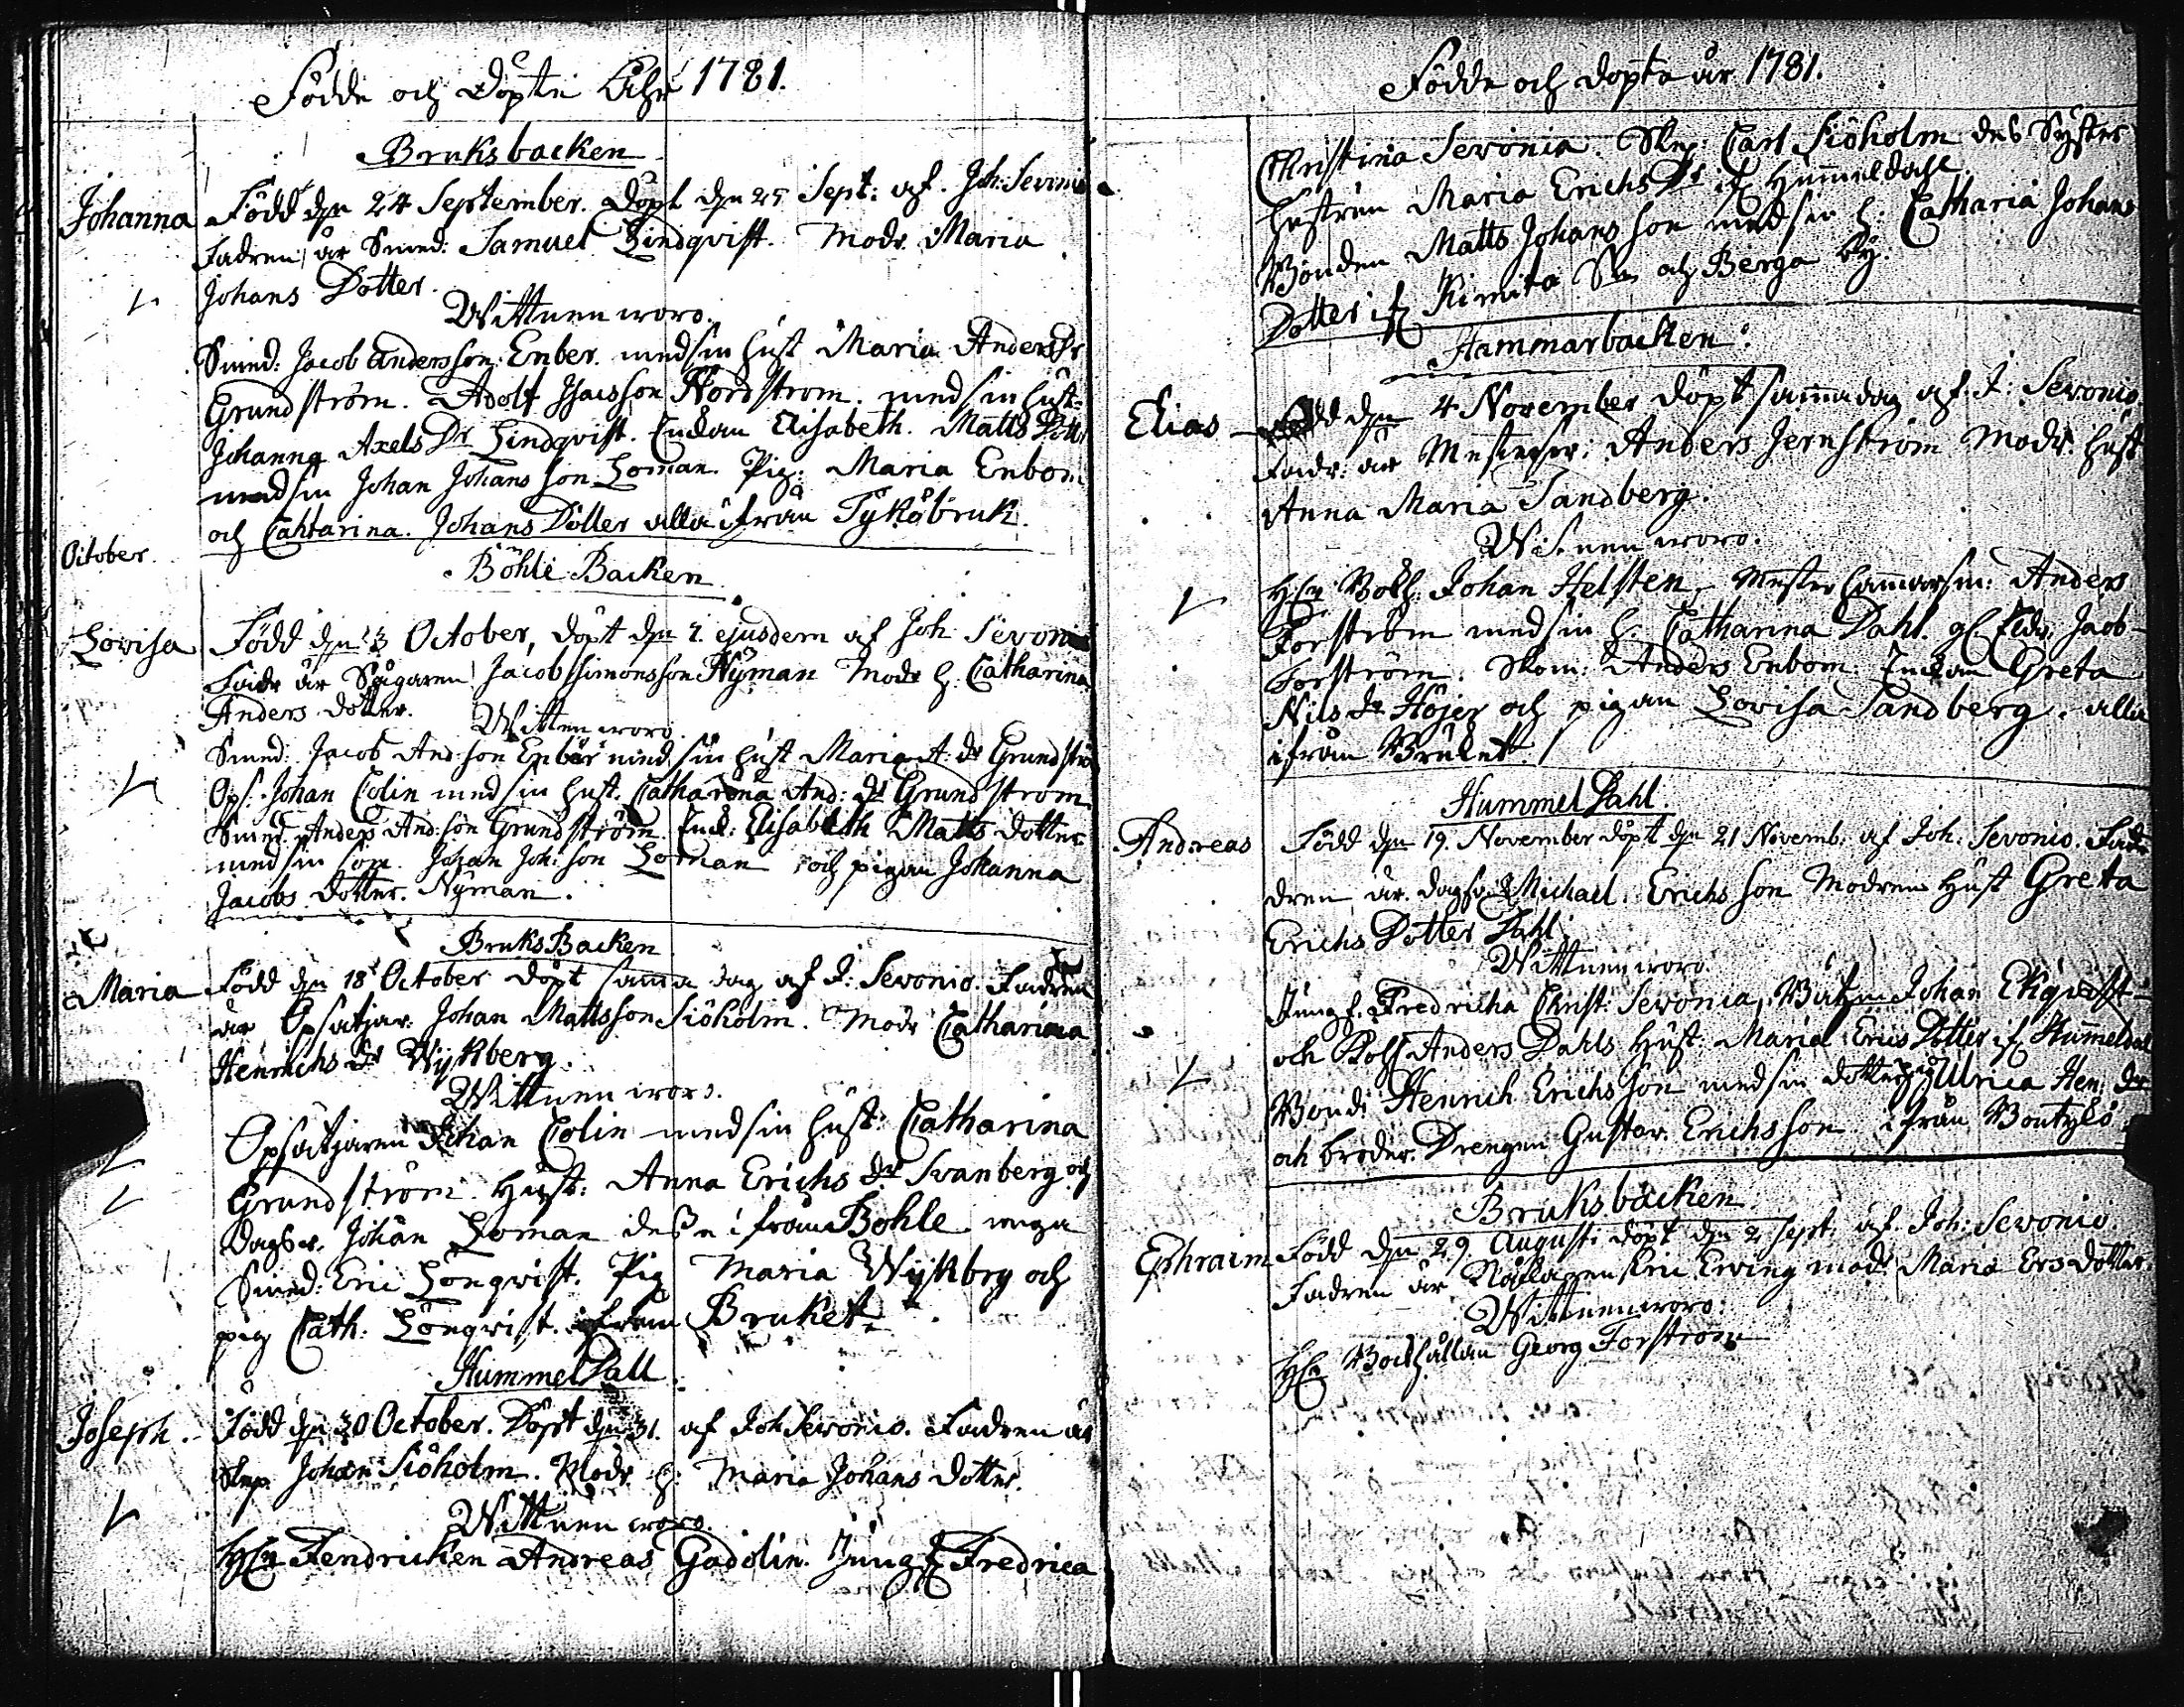 Födde och Döpte Åhr 1781.
Bruksbacken
Johanna Född den 24 September. Döpt den 25 Sept: af. Joh: Sevonio
Fadren är Smed: Samuel Lindqvist. Modr. Maria
Johans Dotter.
Wittnen woro.
Smed: Jacob Andersson Enber. med sin hust Maria Anders Dr
Grundström. Adolf Isacsson Nordstrom. med sin hust:
Johanna Axels Dr Lindqvist. Enckan Elisabeth. Matts Dott
med sin Johan Johans son Loman. Pig: Maria Enbom
och Cahtarina. Johans Dotter alla ifrån Tykö bruk.
October.
Böhle Backen
Lovisa Född den 3 October, döpt den 7. ejusdem af Joh Sevonio
Fadr är Sågaren Jacob Simonsson Nyman Modr h. Catharina
Anders dotter.
Wittnen woro.
Smed: Jacob And: son Enber med sin hust Maria A. dr Grundströ
Ops: Johan Colin med sin hust. Catharina And: dr Grundström.
Smed. Anders And: son Grundström. Enck: Elisabeth Matts dotter
med sin son. Johan Joh: son Loman och pigan Johanna
Jacobs dotter. Nyman.
Bruks Backen
Maria Född den 18 October döpt samma dag af J: Sevonio. Fadren
är Opsätjar. Johan Mattsson Siöholm. Modr Catharina
Henrichs dr Wykberg.
Wittnen woro.
Opsätjaren Johan Colin med sin hust: Catharina
Grundström. Hust: Anna Erichs dr Svanberg och
Dags k. Johan Loman desse ifrån Bohle. unga
Smed: Eric Lönqvist. Pig Maria Wykbrg och
pig Cath: Lönqvist. ifrån Bruket.
Hummel Dall
Joseph. Född den 30 October. Döpt den 31. af Joh Sevonio. Fadren är
Skep. Johan Siöholm. Modr h: Maria Johans dotter.
Wittnen woro
Hr Fendricken Andreas Gadolin. Jungf Fredrica
Födde och döpte år 1781.
Christina Sevonia. Skep: Carl Siöholm des Syster
hustrun Maria Erichs Dr if Hummeldahl
Bonden Matts Johansson med sin h: Catharia Johans
Dotter if Kimito Sn och Berga by.
Hammarbacken.
Elias Född den 4 November döpt samma dag af. J: Sevonio.
Fadr: är Mestersv: Anders Jernström Modr: hust
Anna Maria Sandberg.
Witnen woro.
Hr Bokh: Johan Helsten, Mester Hammarsm: Anders
Forström med sin h. Catharina Dahl. gl Eldr: Jacob
Forström. Skom: Anders Enbom. Enckan Greta
Nils Dr Höjer och pigan Lovisa Sandberg. alla
ifrån Bruket.
Hummel Dahl.
Andreas Född den 19. November döpt den 21 Novemb: af Joh: Sevonio. Fa-
dren är dagsk. Michael. Erichs son Modren Hust Greta
Erichs Dotter Dahl.
Wittnen woro.
Jungf. Fredricha Christ: Sevonia, Båtzm Johan Ekqvist
och Anders Dahls Hust: Maria Erics Dotter if Hummeldal
Bond: Henrich Erichsson med sin dotter pig Ulrica Hen: dr
och broder. Drengen Gustav. Erichsson ifrån
Bruksbacken.
Ephraim Född den 29. Augusti döpt den 2 Sept: af. Joh: Sevonio.
Fadren är Eric Erving mod: Maria Ers dotter.
Wittnen woro:
Hr Bockhållan Georg Forström